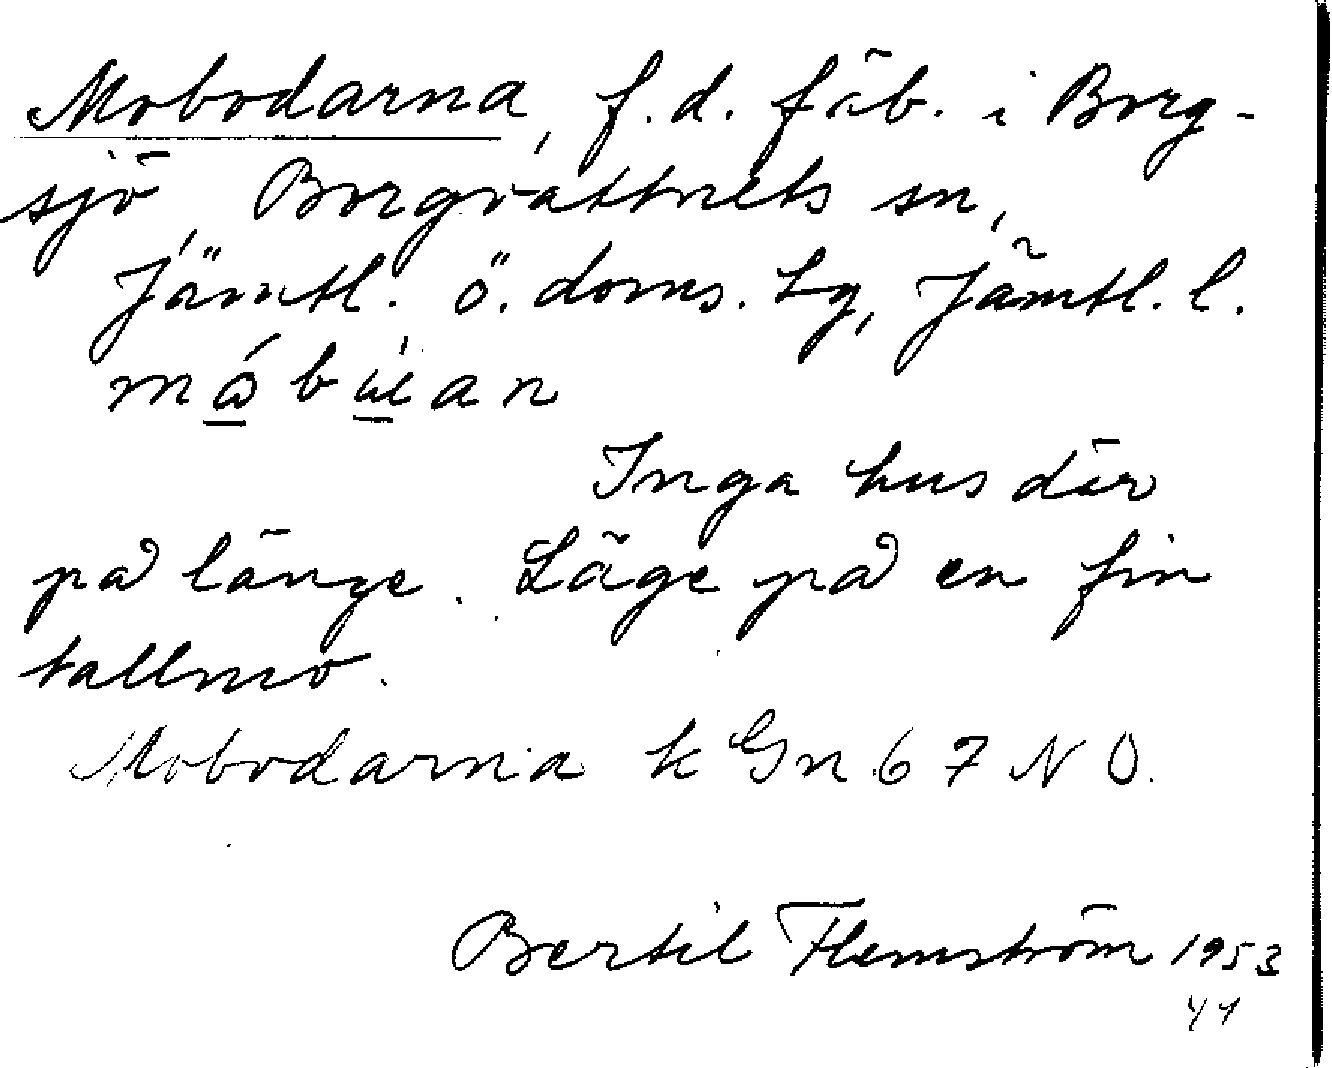 Mobodarna, f.d. fäb. i Borg-
sjö, Borgvattnets sn,
Jämtl. ö. doms. tg, Jämtl. l.
Inga hus där
på länge. Läge på en fin
tallmo.
Mobodarna k Gn 67 NO.
Bertil Flemström 1953